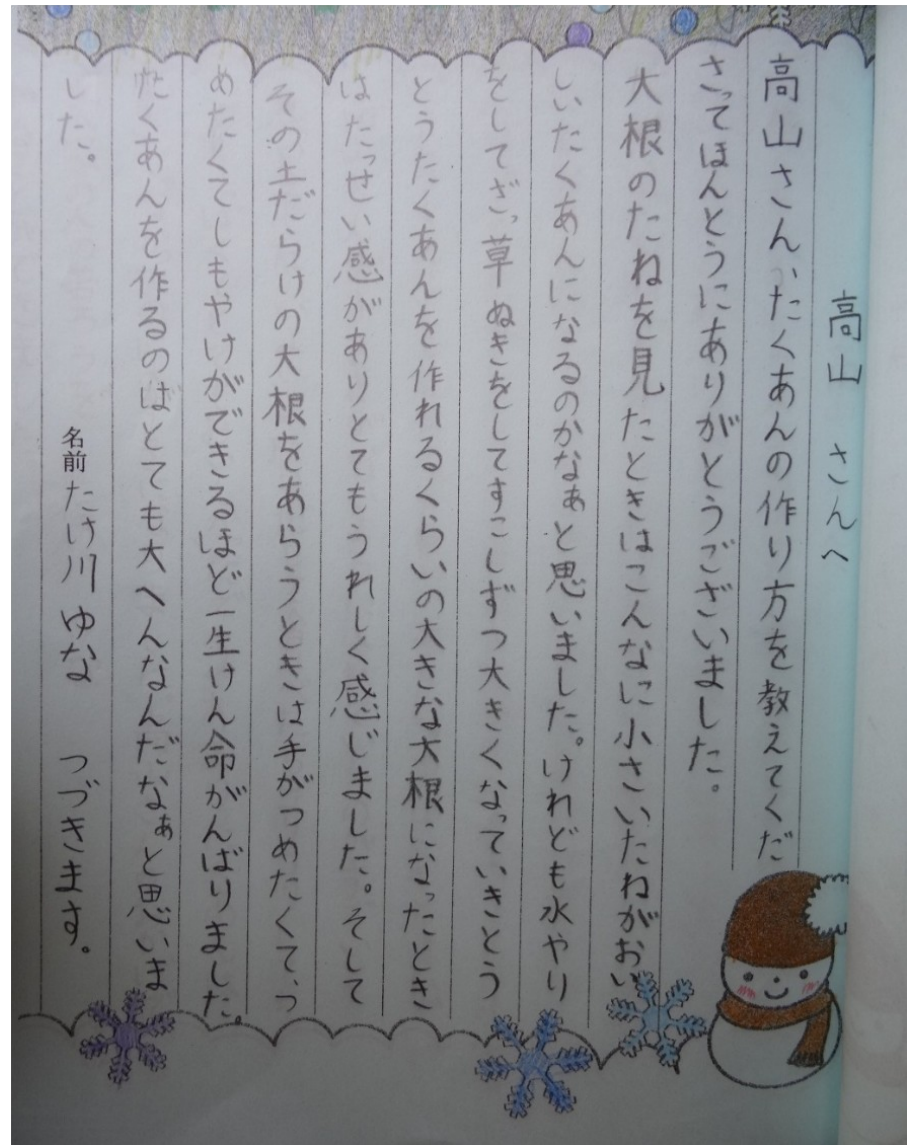 高山 さんへ
高山さん、たくあんの作り方を教えてくだ
さってほんとうにありがとうございました。
大根のたねを見たときはこんなに小さいたねがおい
しいたくあんになるのかなぁと思いました。けれども水やり
をしてざっ草ぬきをしてすこしずつ大きくなっていきとう
とうたくあんを作れるくらいの大きな大根になったとき
はたっせい感がありとてもうれしく感じました。そして
その土だらけの大根をあらうときは手がつめたくて、つ
めたくてしもやけができるほど一生けん命がんばりました。
たくあんを作るのはとても大へんなんだなぁと思いま
した。
名前 たけ川 ゆな つづきます。